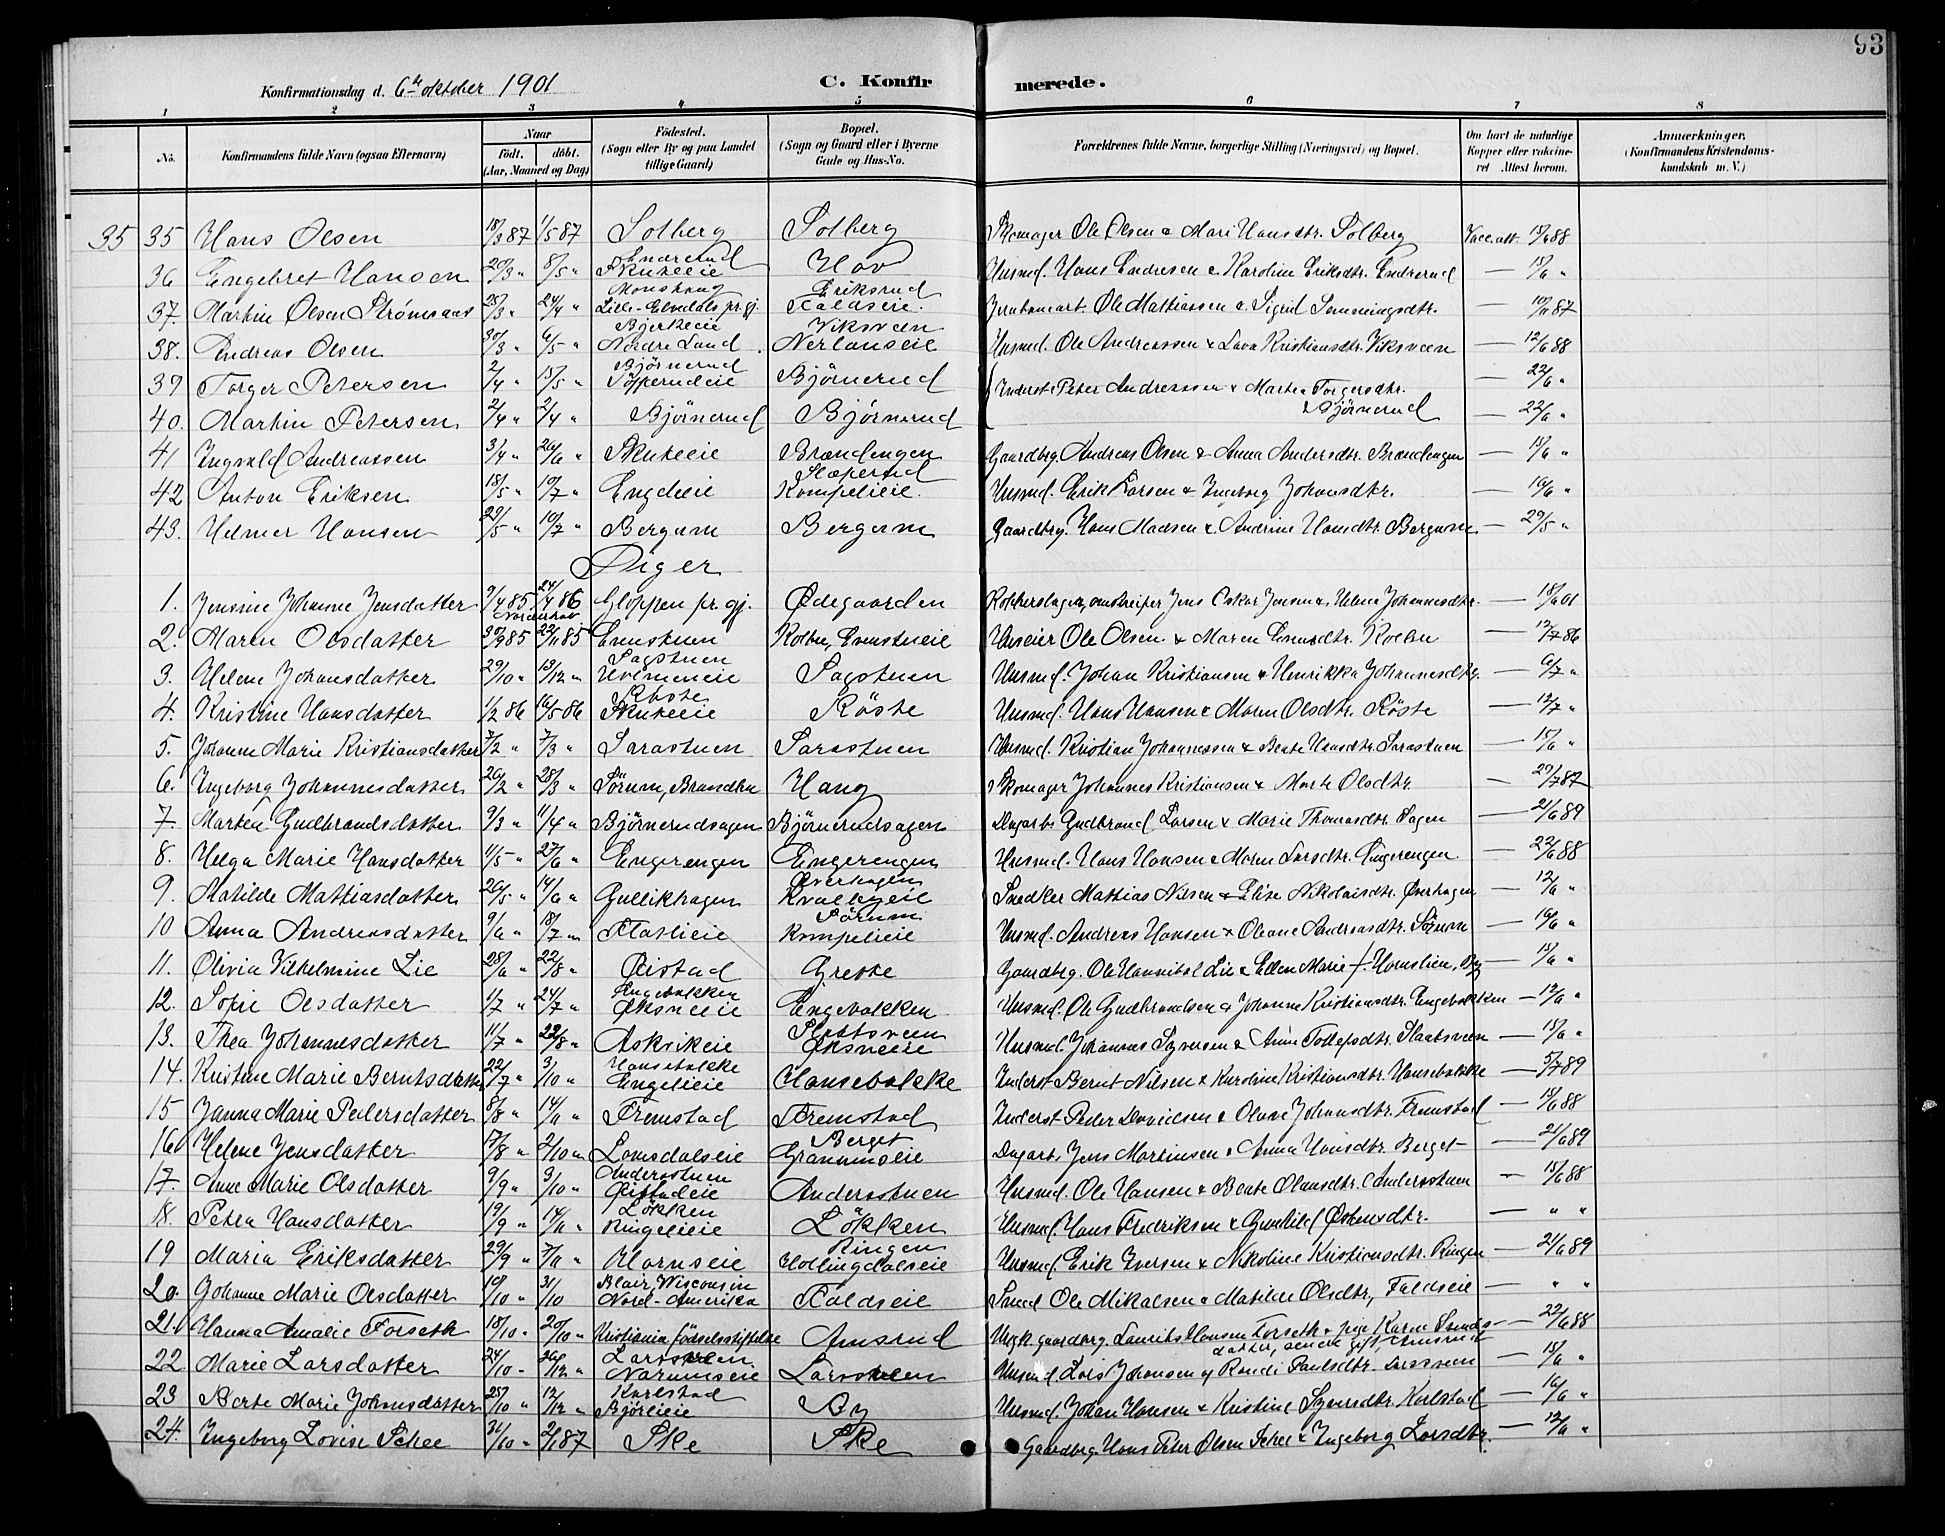 93
Konfirmationsdag d. 6te oktober 1901 C. Konfirmerede.
1 2 3 4 5 6 7 8
No. Konfirmandens fulde Navn (ogsaa Efternavn) Naar født, døbt. (Aar, Maaned og Dag) Fødested. (Sogn eller By og paa Landet tillige Gaard) Bopæl. (Sogn og Gaard eller i Byerne Gade og Hus-No. Forældrenes fulde Navne, borgerlige Stilling (Næringsvei) og Bopæl. Om havt de naturlige Kopper eller vaccineret Attest herom. Anmærkninger. (Konfirmandens Kristendomskundskab m. V.)
35 35 Hans Olsen 18/3 87 1/5 87 Solberg Solberg Skomager Ole Olsen & Mari Hansdtr. Solberg Vacc. att. 15/6 88
36 Engebret Hansen 20/3 " 8/5 " Endrerud Skuteeie Hov Husmd. Hans Endresen & Karoline Eriksdtr. Endrerud — 15/6 "
37. Martin Olsen Strømsaas 28/3 " 24/4 " Lille-Elvedals pr.gj. Eriksrud Faldseie. Ole Mathiassen & Sigrid Semmingsdtr. — 10/6 87
38. Andreas Olsen 30/3 " 6/5 " Bjerkeeie Nordre Land Viksveen Nerlauseie Husmd. Ole Andreassen & Lava Kristiansdtr. Viksveen — 12/6 88
39 Torger Petersen 2/4 " 15/5 " Bjørnerud Tøpperudeie Bjørnerud Inderst Peter Andreassen & Marte Torgersdtr. — 22/6 "
40. Martin Petersen 2/4 " 2/4 " Bjørnerud Bjørnerud Bjørnerud — 22/6 "
41 Ingvald Andreassen 3/4 " 26/6 " Skuteeie Brændengen Gaardbrg. Andreas Olsen & Anna Andersdtr. Brændengen — 15/6 "
42 Anton Eriksen 18/5 " 10/7 " Engelieie Slæperud Kompelieie. Husmd. Erik Larsen & Ingeborg Johansdtr. — 16/6 "
43. Helmer Hansen 29/5 " 10/7 " Bergum Bergum Gaardbrg. Hans Madsen & Andrine Hansdtr. Bergum — 29/5 "
Piger
1. Jensine Johanne Jensdatter 9/4 85 24/4 86 Gloppen pr. gj. Ødegaarden Kobberslager, omstreifer Jens Oskar Jensen & Helene Johannesdtr. — 18/6 01
2. Maren Olsdatter 30/9 85 22/11 85 Norderhov Evenstuen Kolbu, Evenstueie Huseier Ole Olsen & Maren Evensdtr. Kolbu — 12/7 86
3. Helene Johansdatter 29/10 " 13/12 " Sagstuen Sagstuen Husmd. Johan Kristiansen & Henrikka Johannesdtr. — 6/7 "
4. Kristine Hansdatter 1/2 86 16/5 86 Røste Skuteeie Røste Husmd. Hans Hansen & Maren Olsdtr. Røste — 12/7 "
5. Johanne Marie Kristiansdatter 7/2 " 7/3 " Sarastuen Sarastuen Husmd. Kristian Johannessen & Beate Hansdtr. Sarastuen — 15/6 "
6. Ingeborg Johannesdatter 26/2 " 28/3 " Sørum, Brandbu Haug Skomager Johannes Kristiansen & Marte Olsdtr. — 29/7 87
7. Martea Gudbrandsdatter 9/3 " 11/4 " Bjørnerudsagen Bjørnerudsagen Dagarb. Gudbrand Larsen & Marie Thomasdtr. Sagen — 21/6 89
8. Helga Marie Hansdatter 11/5 " 27/6 " Engerengen Engerengen Husmd. Hans Hansen & Maren Larsdtr. Engerengen — 22/6 88
9. Matilde Mathiasdatter 26/5 " 14/6 " Gullikhagen Øverhagen Snedker Mathias Nilsen & Elise Nikolaisdtr. Øverhagen — 12/6 "
10 Anna Andreasdatter 9/6 " 18/7 " Flatlieie Sørum Kompelieie Husmd. Andreas Hansen & Oleane Andreasdtr. Sørum — 16/6 "
11. Olivia Vilhelmine Lie 28/6 " 22/8 " Østad Grette Gaardbrg. Ole Hannibal Lie & Ellen Marie f. Hornslien, — 15/6 "
12. Sofie Olsdatter 1/7 " 24/7 " Engebakken Øksneeie Engebakken Husmd. Ole Gudbrandsen & Johanne Kristiansdtr. Engebakken — 12/6 "
13. Thea Johannesdatter 11/7 " 29/8 " Askvikeie Slaatsveen Øksneeie Husmd. Johannes Syversen & Anne Tollefsdtr. Slaatsveen — 15/6 "
14. Kristine Marie Berntsdatter 22/7 " 3/10 " Hansebakke Engelieie Hansebakke Inderst Bernt Nilsen & Karoline Kristiansdtr. Hansebakke — 5/7 89
15 Janna Marie Pedersdatter 8/8 " 14/11 " Fremstad Fremstad Inderst Peder Davidsen & Oleane Johansdtr. Fremstad — 15/6 88
16 Helene Jensdatter 17/8 " 2/10 " Lomsdalseie Berget Granumseie Dagarb. Jens Martinsen & Anna Hansdtr. Berget — 21/6 89
17. Anne Marie Olsdatter 9/9 " 3/10 " Andersstuen Østadeie Andersstuen Husmd. Ole Hansen & Beate Olausdtr. Andersstuen — 15/6 88
18. Petra Hansdatter 19/9 " 14/11 " Løkken Ringelieie Løkken Husmd. Hans Fredriksen & Gunhild Østensdtr. — " "
19 Maria Eriksdatter 29/9 " 7/11 " Hornseie Ringen Hollingdalseie Husmd. Erik Iversen & Nikoline Kristiansdtr. Ringen — 21/6 89
20. Johanne Marie Olsdatter 10/10 " 31/10 Blair, Wisconsin Nord-Amerika Faldseie Smed Ole Mikalsen & Matilde Olsdtr, Faldseie — " "
21. Hanna Amalie Forseth 18/10 " 20/10 " Kristiania fødselsstiftelse Amsrud Ungk. gaardbrg. Laurits Hansen Forseth & pige Karen Svends- datter, senere gift, Amsrud — 22/6 88
22 Marie Larsdatter 24/10 " 26/12 " Larsveen Narumseie Larsveen Husmd. Lars Johansen og Randi Paulsdtr. Larsveen — 15/6 "
23 Berte Marie Johansdatter 25/10 " 12/12 " Karlstad Bjørlieie Husmd. Johan Hansen & Kristine Syversdtr. Karlstad — 16/6 "
24. Ingeborg Lovise Schee 31/10 " 2/1 87 Ske Ske Gaardbrg. Hans Peter Olsen Schee & Ingeborg Larsdtr. — 12/6 "